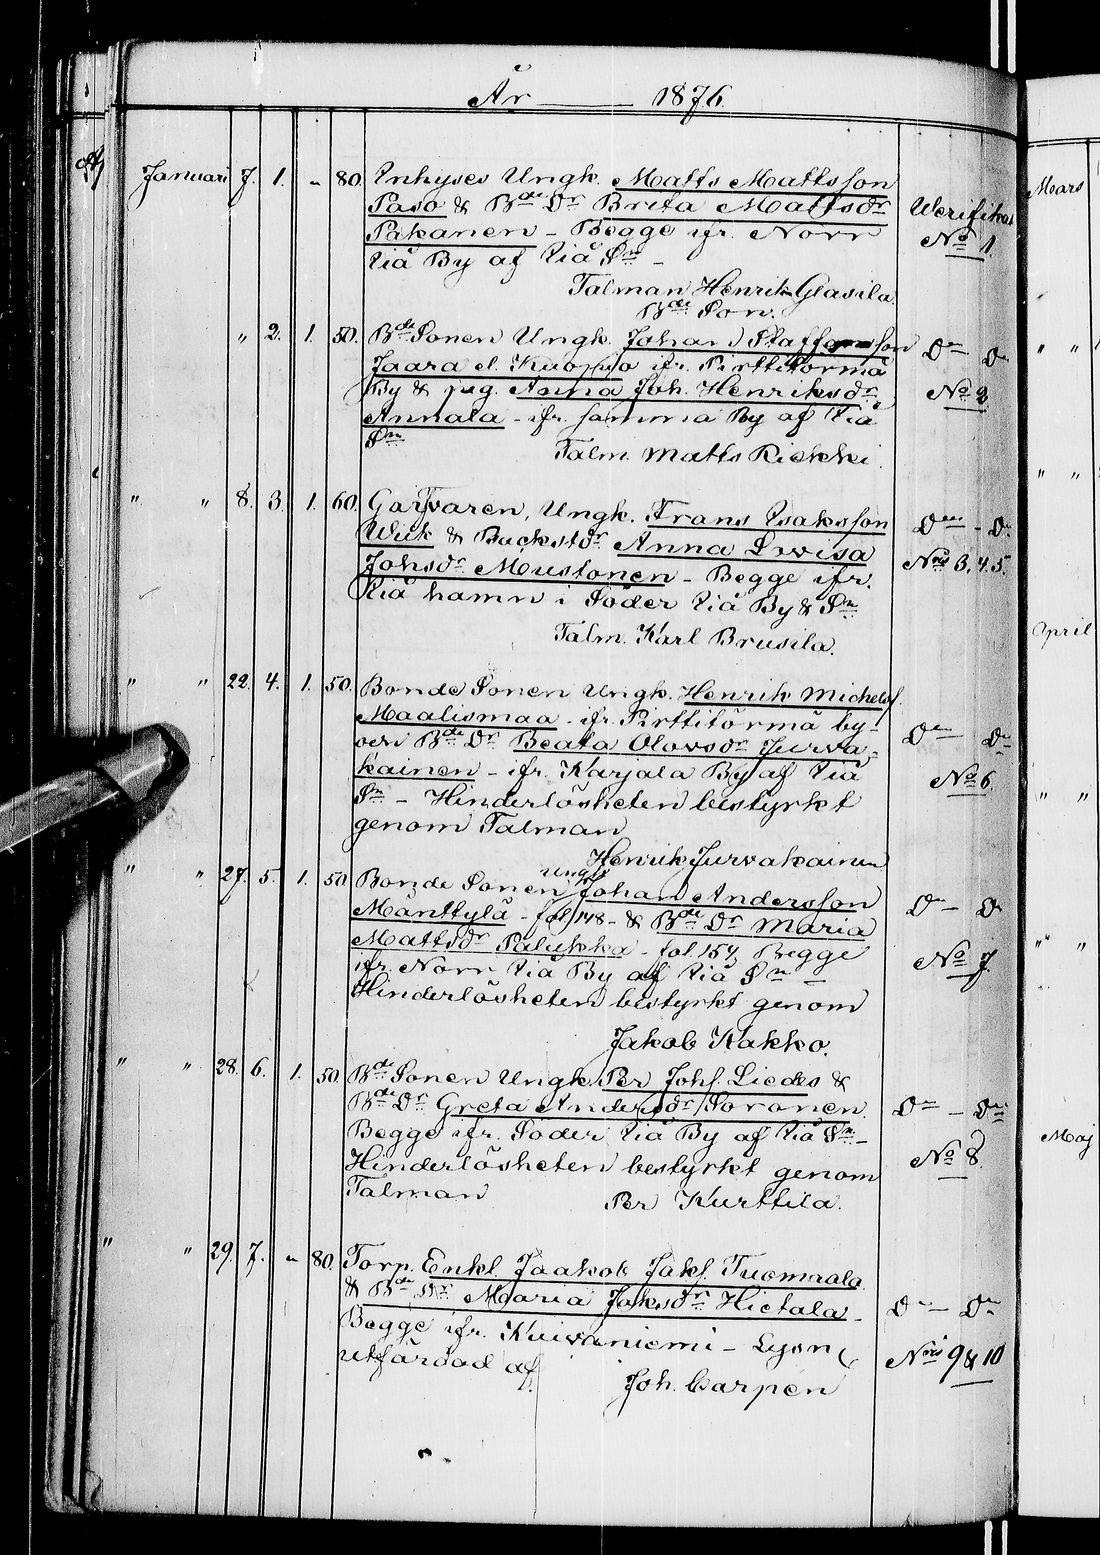 År 1876.
Januari 7. 1. " 80. Inhyses Ungk. Matts Mattsson
Paso & Bde Dr Brita Mattsdr
Pakanen - Begge ifr. Norr
Iiå By af Iiå Sn -
Verifikat
No 1
Talman Henrik Glasila.
Bde Son.
" 2. 1. 50. Bde Sonen Ungk. Johan Staffansson
Jaara el. Kuoppo ifr. Pirttitörmä
By & pig. Anna Joh. Henriksdr
Annala - ifr samma By af Iiå
Sn
Do Do
No 2
Talm. Matts Riekki.
" " 8. 3. 1. 60. Garfvaren, Ungk. Frans Isaksson
Wiik & Backstdr Anna Lovisa
Johsdr Mustonen - Begge ifr.
Iiå hamn i Söder Iiå By & Sn
Do - Do
Nris 3. 4. 5.
Talm. Karl Brusila.
" " 22. 4. 1. 50. Bonde Sonen Ungk. Henrik Michelsf.
Maalismaa - ifr. Pirttitörmä by -
och Bde Dr Beata Olovsdr Jurva-
kainen - ifr. Karjala By af Iiå
Sn - Hinderlösheten bestyrkt
genom Talman
Do Do
No 6.
Henrik Jurvakainen
" " 27. 5. 1. 50 Bonde Sonen Ungk Johan Andersson
Mänttylä - fol 148 - & Bde Dr Maria
Mattsdr Palukka - fol. 154, Begge
ifr. Norr Iiå By af Iiå Sn -
Hinderlösheten bestyrkt genom
Do - Do
No 7.
Jakob Kakko.
" " 28. 6. 1. 50. Bde Sonen Ungk. Per Johs. Liedes &
Bde Dr Greta Andersdr Soronen.
Begge ifr. Söder Iiå By af Iiå Sn -
Hinderlösheten bestyrkt genom
Talman Per Kurttila.
Do - Do
No 8
" " 29. 7. " 80. Torp. Enkl. Jaakob Jaks. Tuomaala
& Bde Dr Maria Jaksdr Hietala -
Begge ifr. Kuivaniemi - Lysn
utfärdad af
Joh. Carpén
Do - Do
Nris 9 & 10
Mars
" "
" "
April
" "
" "
Maj